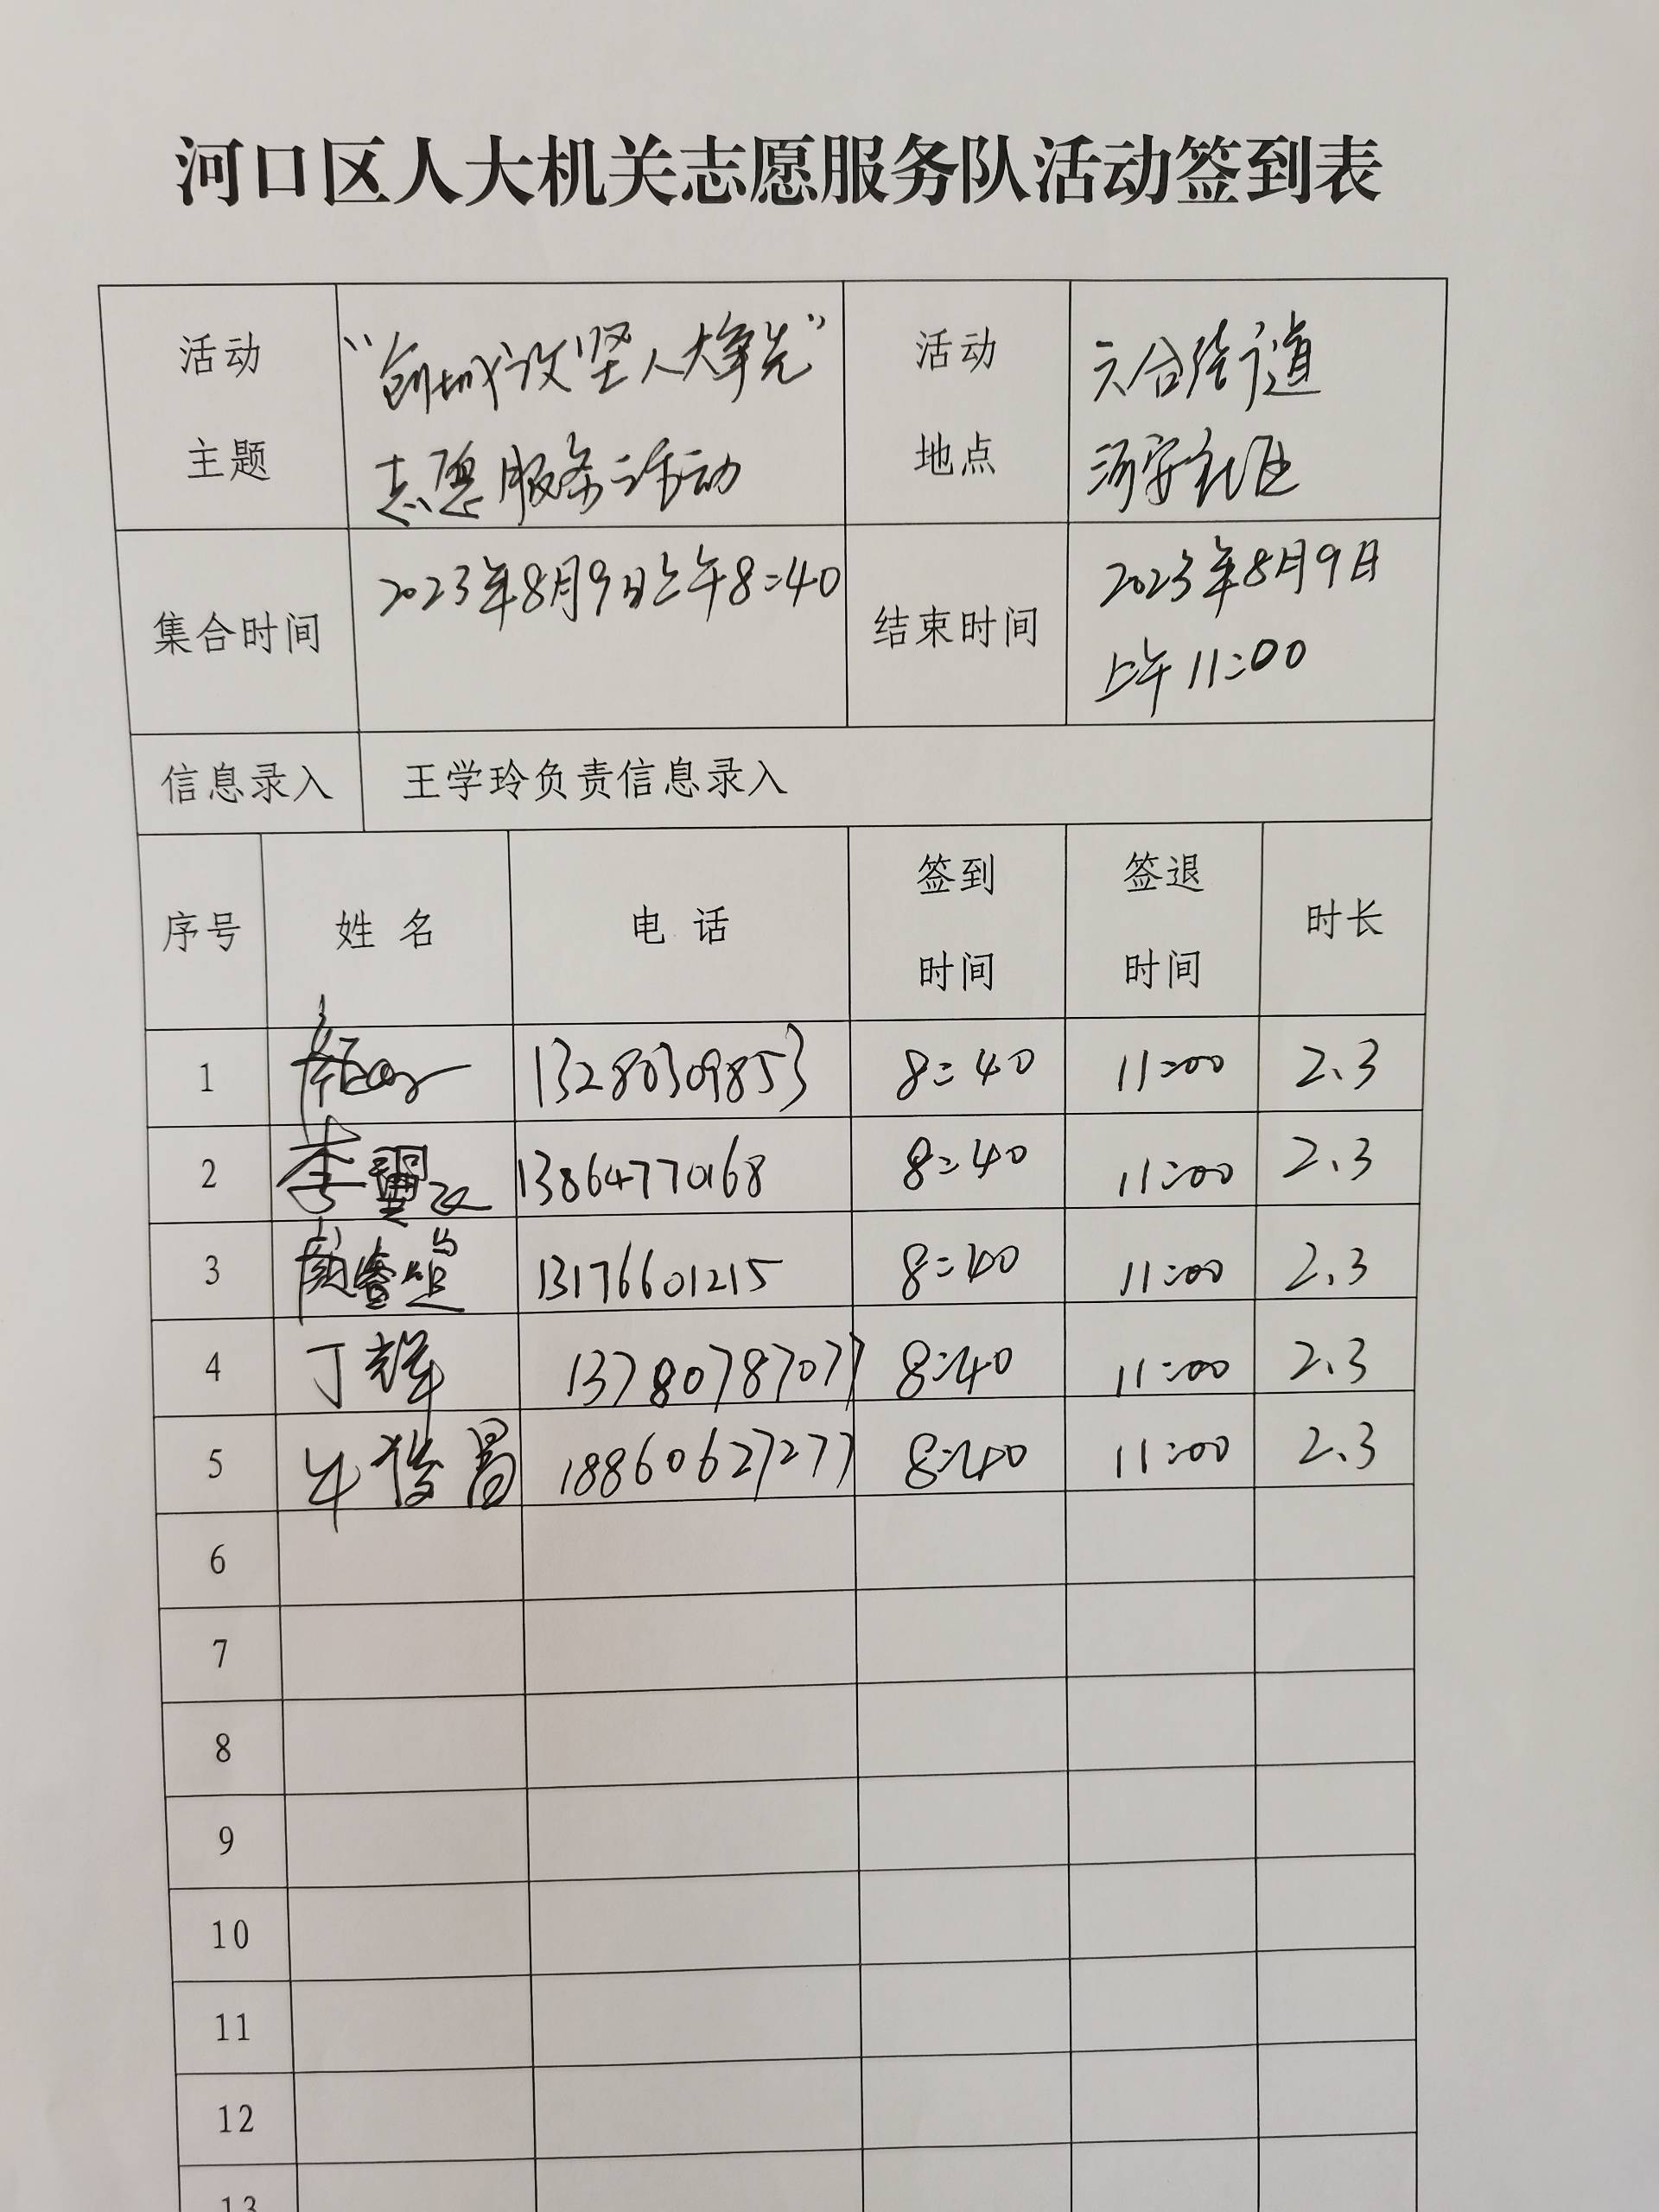 河口区人大机关志愿服务队活动签到表
活动
主题
“创城攻坚人大争先”
志愿服务活动
活动
地点
六合街道
河安社区
集合时间
2023年8月9日上午8:40
结束时间
2023年8月9日
上午11:00
信息录入
王学玲负责信息录入
序号
姓 名
电 话
签到
时间
签退
时间
时长
1 13280309853 8:40 11:00 2.3
2 李翼 13864770168 8:40 11:00 2.3
3 13176601215 8:40 11:00 2.3
4 丁辉 13780787077 8:40 11:00 2.3
5 牛俊昌 18860627277 8:40 11:00 2.3
6
7
8
9
10
11
12
13